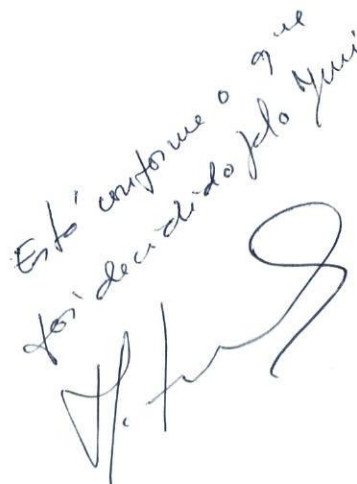 Está conforme o que
foi decidido pelo Juri